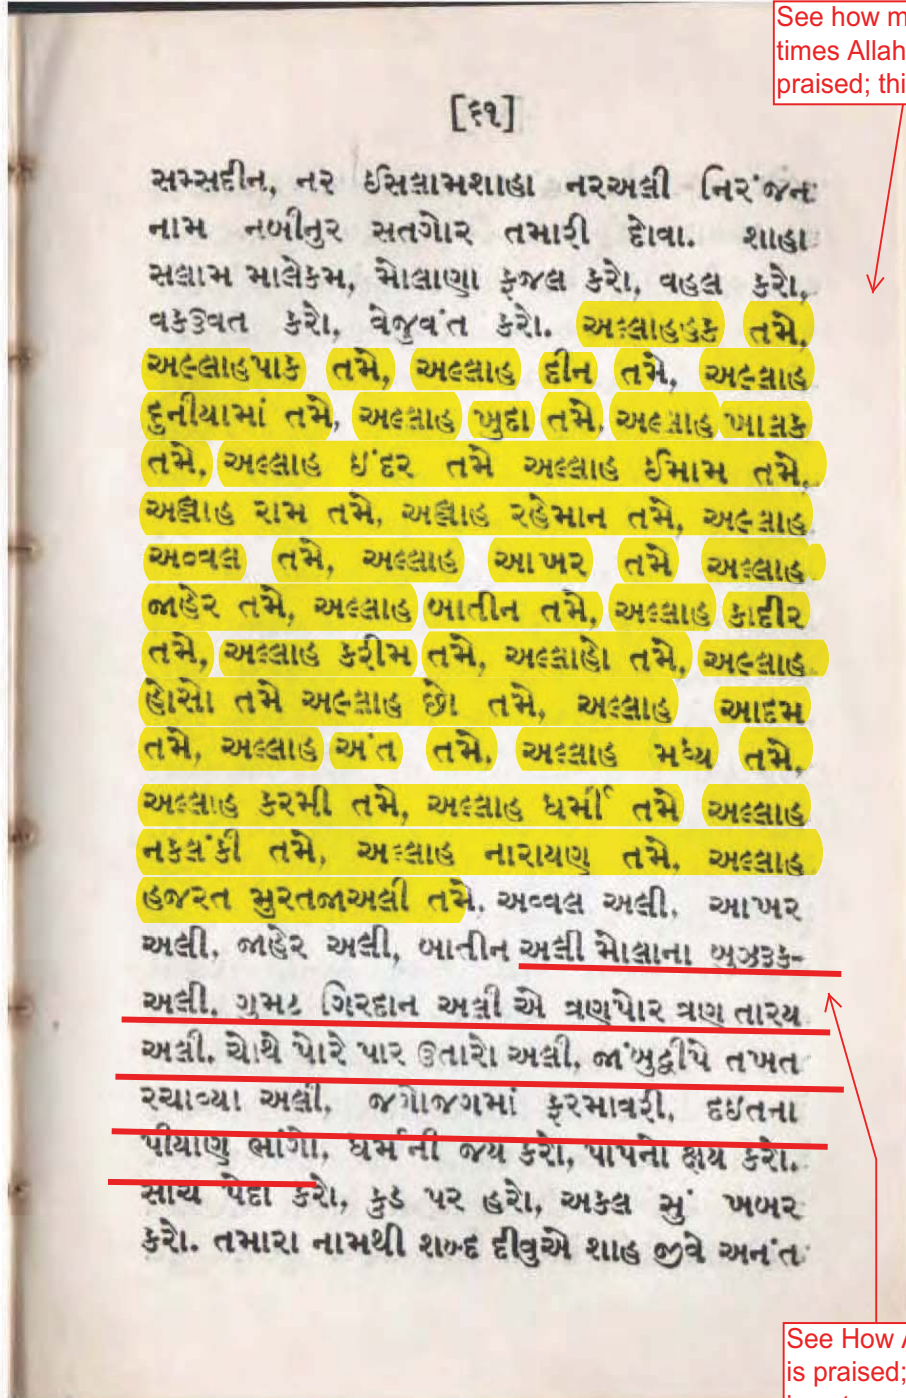 See how m
times Allah
praised; thi
[૬૧]
સમ્સદીન, નર ઈસલામશાહા નરઅલી નિરંજન
નામ નબીનુર સતગોર તમારી દોવા. શાહા
સલામ માલેકમ, મોલાણા ફજલ કરો, વહલ કરો,
વકઉવત કરો, વેજુવંત કરો. અલ્લાહહક તમે,
અલ્લાહપાક તમે, અલ્લાહ દીન તમે, અલ્લાહ
દુનીયામાં તમે, અલ્લાહ ખુદા તમે, અલ્લાહ ખાલક
તમે, અલ્લાહ ઇંદર તમે અલ્લાહ ઈમામ તમે,
અલ્લાહ રામ તમે, અલ્લાહ રહેમાન તમે, અલ્લાહ
અવ્વલ તમે, અલ્લાહ આખર તમે અલ્લાહ
જાહેર તમે, અલ્લાહ બાતીન તમે, અલ્લાહ કાદીર
તમે, અલ્લાહ કરીમ તમે, અલ્લાહો તમે, અલ્લાહ
હોસો તમે અલ્લાહ છો તમે, અલ્લાહ આદમ
તમે, અલ્લાહ અંત તમે, અલ્લાહ મધ્ય તમે,
અલ્લાહ કરમી તમે, અલ્લાહ ધર્મી તમે અલ્લાહ
નકલંકી તમે, અલ્લાહ નારાયણ તમે, અલ્લાહ
હજરત મુરતજાઅલી તમે, અવ્વલ અલી, આખર
અલી, જાહેર અલી, બાતીન અલી મોલાના બુઝરૂક-
અલી, ગુમટ ગિરદાન અલી એ ત્રણપોર ત્રણ તારય
અલી, ચોથે પોરે પાર ઉતારો અલી, જાંબુદ્વીપે તખત
રચાવ્યા અલી, જગોજગમાં ફરમાવરી, દઇતના
પીયાણ ભાંગો, ધર્મની જય કરો, પાપનો ક્ષય કરો.
સાચ પેદા કરો, કુડ પર હરો, અકલ સું ખબર
કરો. તમારા નામથી શબ્દ દીવુએ શાહ જીવે અનંત
See How A
is praised;